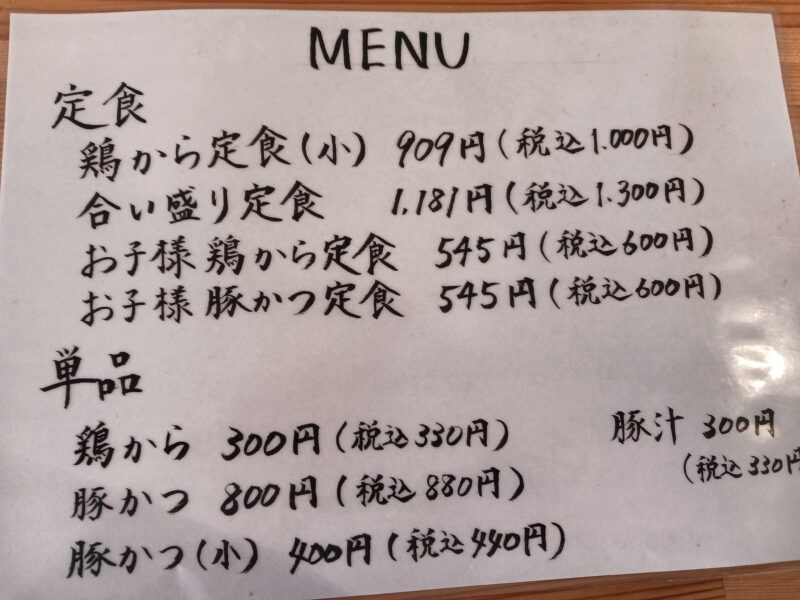 MENU
定食
鶏から定食(小) 909円(税込1.000円)
合い盛り定食 1,181円(税込1.300円)
お子様鶏から定食 545円(税込600円)
お子様豚かつ定食 545円(税込600円)
単品
鶏から 300円(税込330円)
豚かつ 800円(税込880円)
豚かつ(小) 400円(税込440円)
豚汁 300円
(税込330円